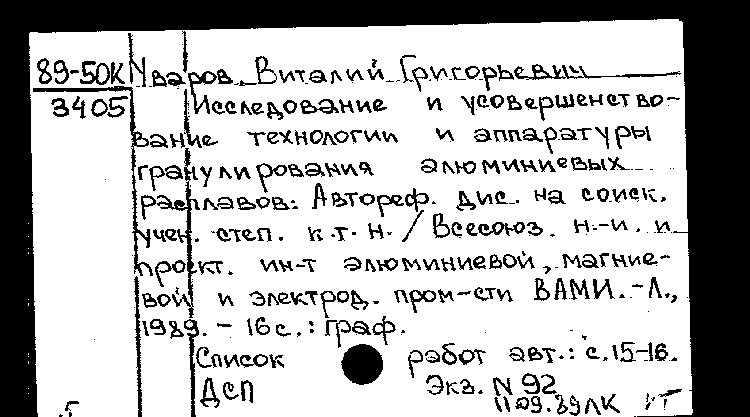 89-50К Уваров, Виталий Григорьевич
3405 Исследование и усовершенство-
вание технологии и аппаратуры
гранулирования алюминиевых
расплавов: Автореф. дис. на соиск.
учен. степ. к.т.н. / Всесоюз. н.-и. и
проект. ин-т алюминиевой, магние-
вой и электрод. пром-сти ВАМИ. -Л.,
1989. - 16 с.: граф.
Список работ авт.: с.15-16.
ДСП Экз. N 92
11.09.89 ЛК